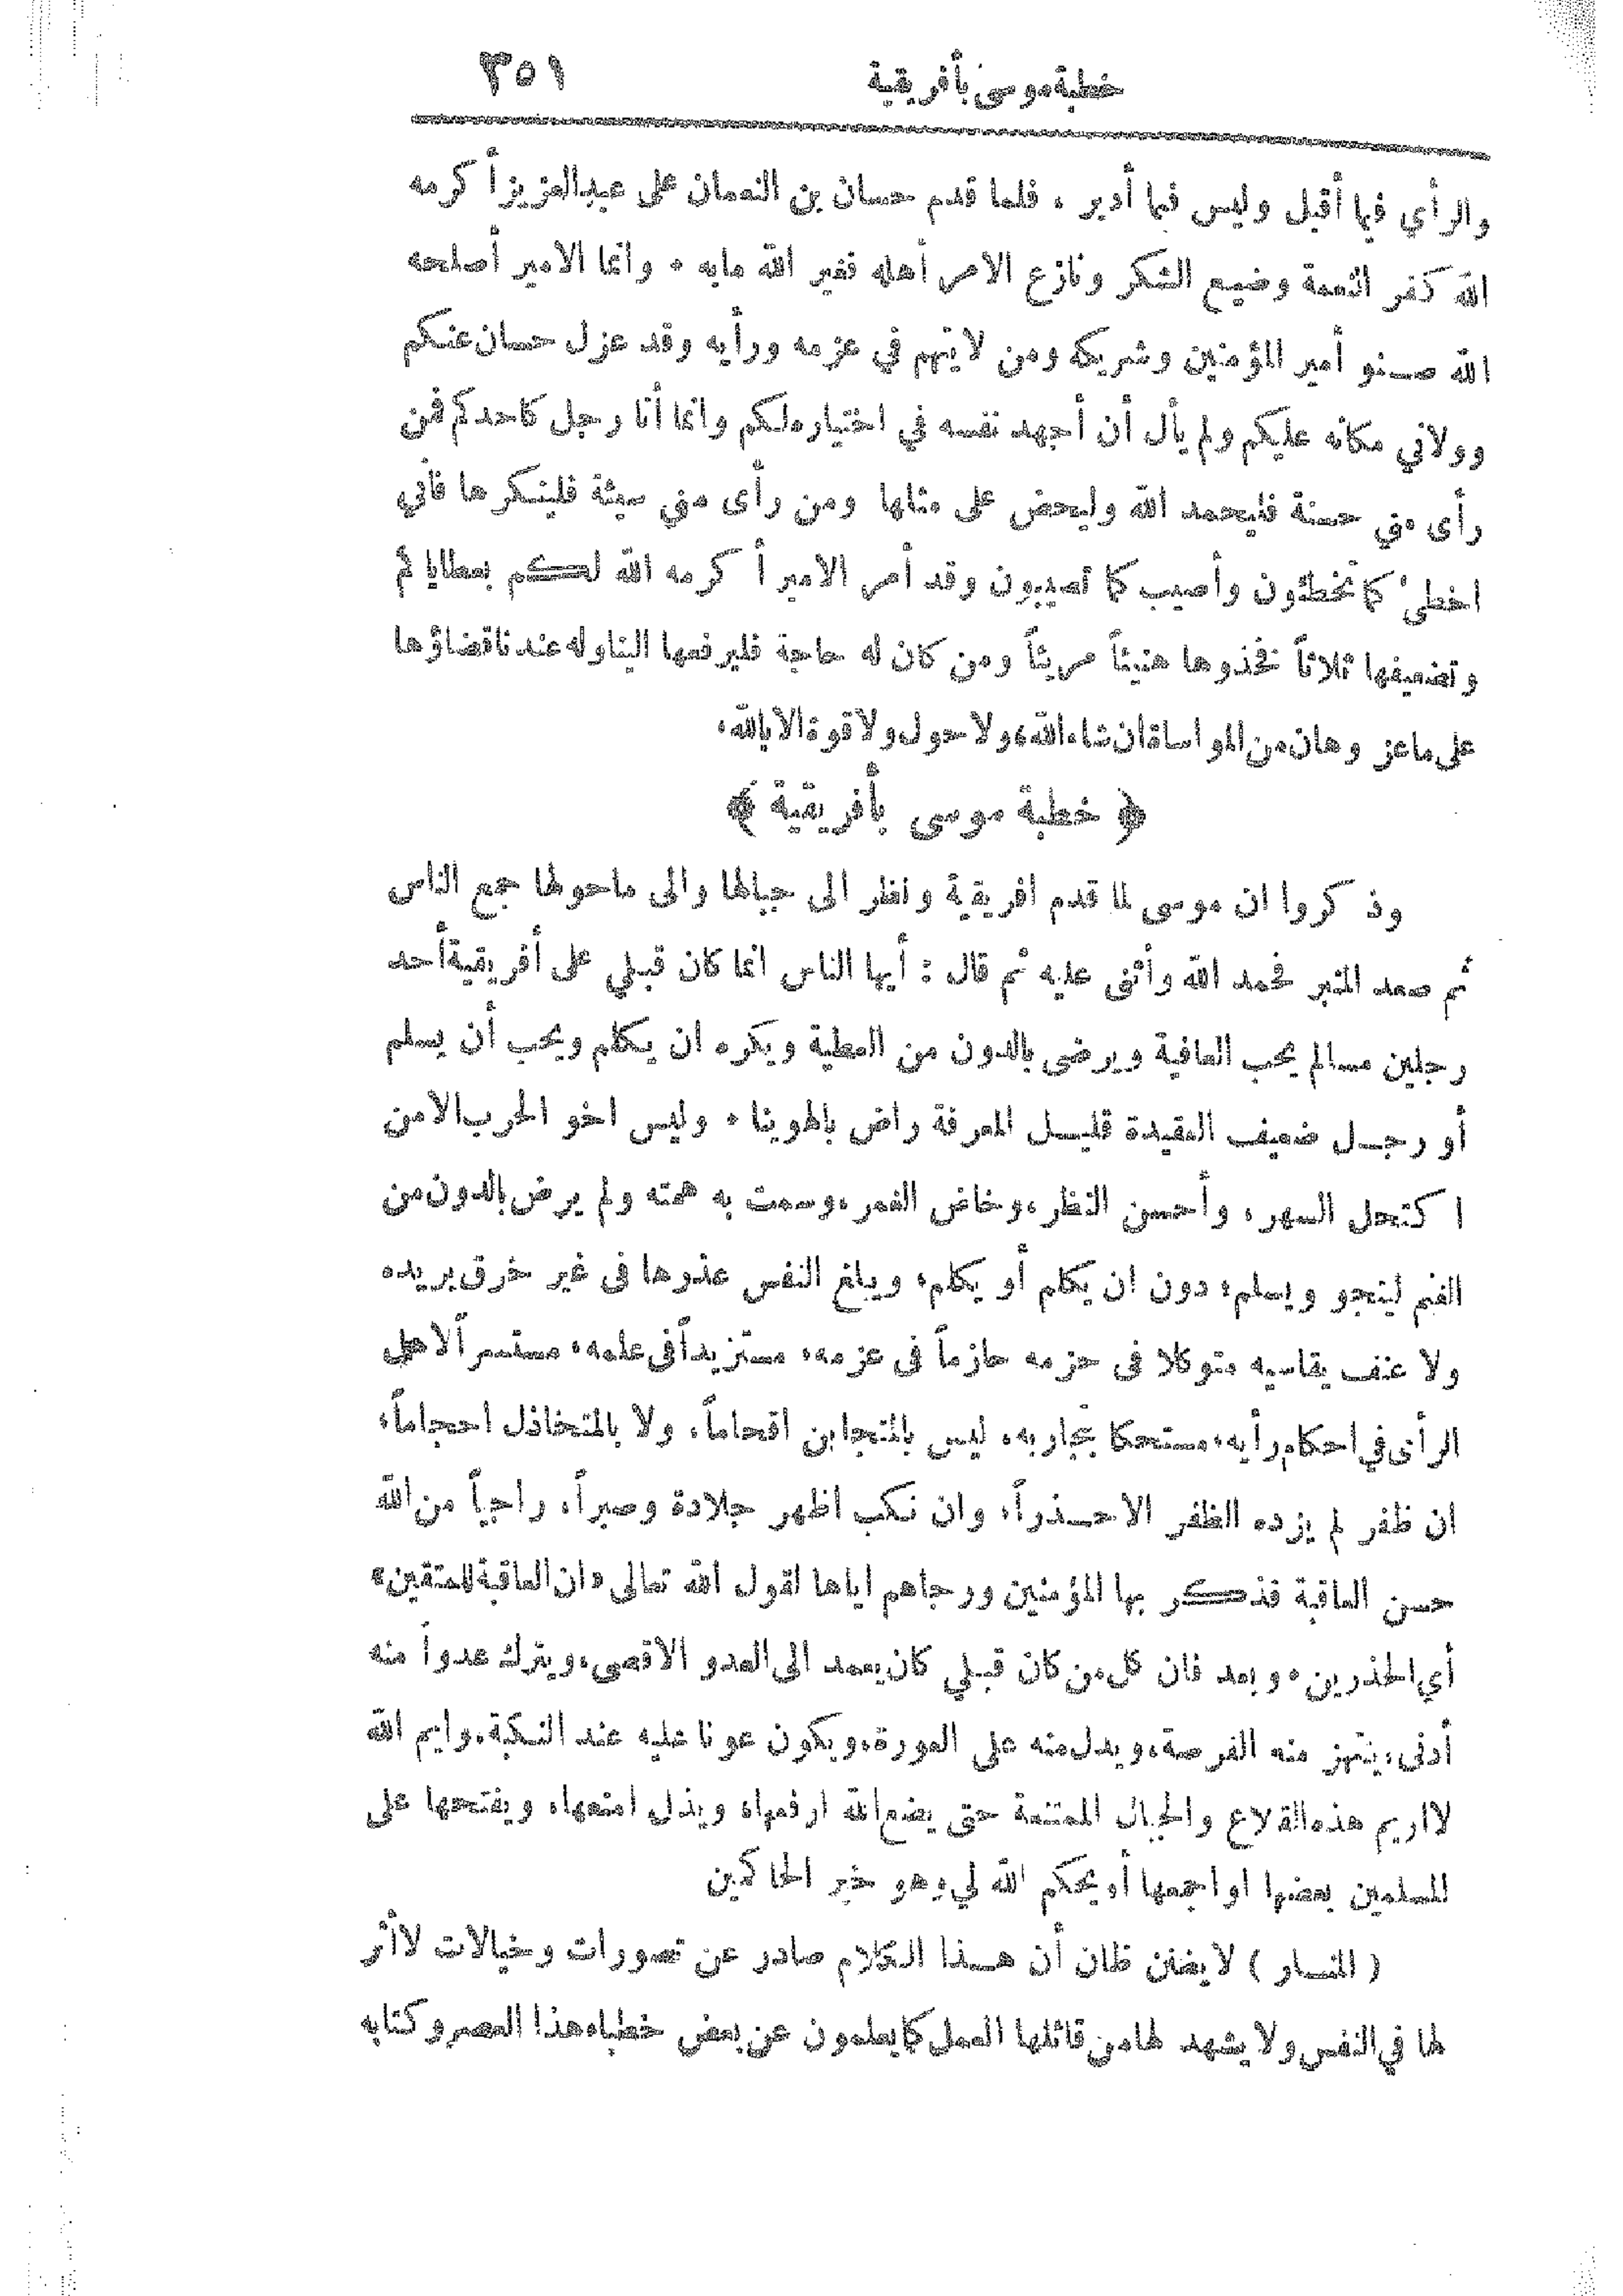 خطبة موسى بأفريقية ٣٥١
والرأي فيما أقبل وليس فيما أدبر ، فلما قدم حسان بن النعمان على عبدالعزيز أكرمه
الله كفر النعمة وضيع الشكر ونازع الامر أهله فغير الله مابه ، وانما الامير أصلحه
الله صنو أمير المؤمنين وشريكه ومن لايتهم في عزمه ورأيه وقد عزل حسان عنكم
وولاني مكانه عليكم ولم يأل أن أجهد نفسه في اختياره لكم وانما أنا رجل كاحدكم فمن
رأى مني حسنة فليحمد الله وليحض على مثلها ومن رأى مني سيئة فلينكرها فأني
اخطئ كما تخطئون وأصيب كما تصيبون وقد أمر الامير أكرمه الله لكم بعطايا كم
وتضعيفها ثلاثاً فخذوها هنيئاً مريئاً ومن كان له حاجة فليرفعها الينا وله عندنا قضاؤها
على ماعز وهان من المواساة ان شاء الله، ولا حول ولا قوة الا بالله،
﴿ خطبة موسى بأفريقية ﴾
وذكروا ان موسى لما قدم افريقية ونظر الى جبالها والى ماحولها جمع الناس
ثم صعد المنبر فحمد الله وأثنى عليه ثم قال : أيها الناس انما كان قبلي على أفريقية أحد
رجلين مسالم يحب العافية ويرضى بالدون من العطية ويكره ان يكلم ويحب أن يسلم
أو رجل ضعيف العقيدة قليل المعرفة راض بالهوينا ، وليس اخو الحرب الا من
اكتحل السهر، وأحسن النظر، وخاض الغمر، وسمت به همته ولم يرض بالدون من
الغنم لينجو ويسلم، دون ان يكلم أو يكلم، ويبلغ النفس عذرها فى غير خرق يريده
ولا عنف يقاسيه متوكلا فى حزمه حازماً فى عزمه، مستزيداً فى علمه، مستشيراً لاهل
الرأى في احكام رأيه، مستحكا بتجاربه، ليس بالمتجابن اقحاماً، ولا بالمتخاذل احجاماً،
ان ظفر لم يزده الظفر الا حذراً، وان نكب اظهر جلادة وصبراً، راجياً من الله
حسن العاقبة فذكر بها المؤمنين ورجاهم اياها لقول الله تعالى «ان العاقبة للمتقين»
أي الحذرين، وبعد فان كل من كان قبلي كان يعمد الى العدو الاقصى، ويترك عدواً منه
أدنى، ينتهز منه الفرصة، ويدل منه على العورة، ويكون عونا عليه عند النكبة، وايم الله
لا اريم هذه القلاع والجبال الممتنعة حتى يضع الله ارفعها، ويذل امنعها، ويفتحها على
المسلمين بعضها او اجمعها أو يحكم الله لي وهو خير الحاكمين
( المنار ) لا يظنن ظان أن هذا الكلام صادر عن تصورات وخيالات لا أثر
لها في النفس ولا يشهد لها من قائلها العمل كما يعلمون عن بعض خطباء هذا العصر وكتابه